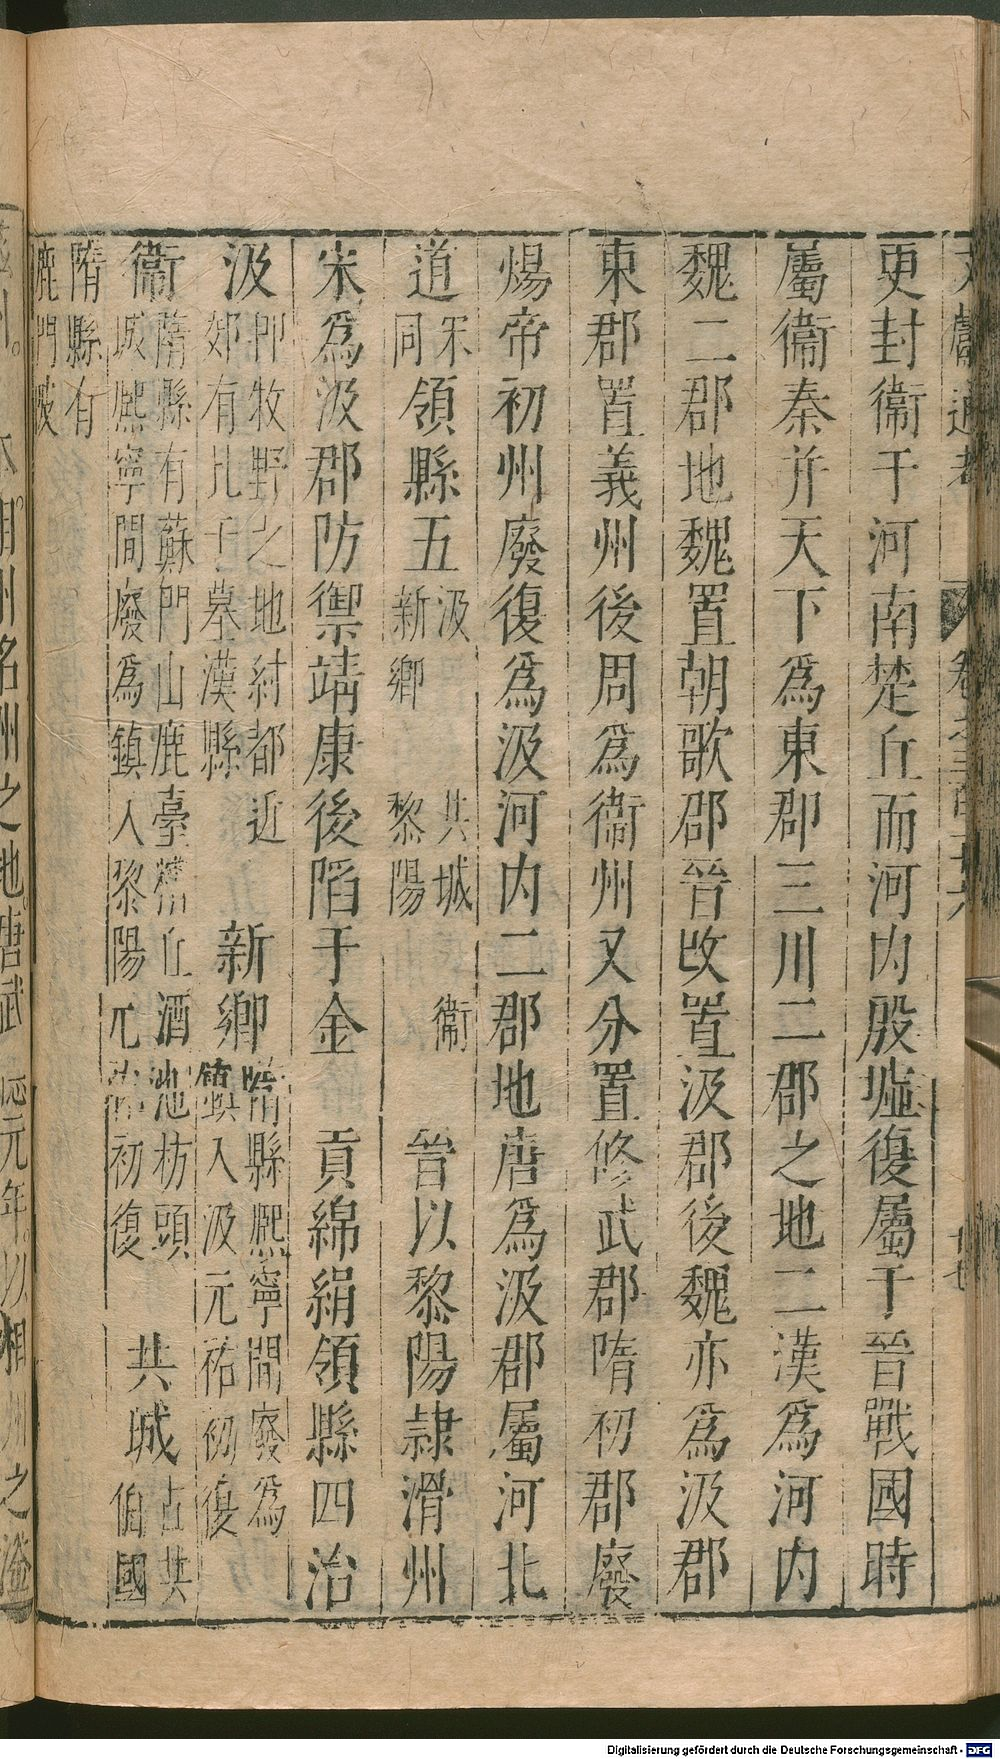 更封衞于河南楚丘而河内殷墟復屬于晉戰國時
屬衞秦并天下爲東郡三川二郡之地二漢爲河内
魏二郡地魏置朝歌郡晉改置汲郡後魏亦爲汲郡
東郡置義州後周爲衞州又分置修武郡隋初郡廢
煬帝初州廢復爲汲河内二郡地唐爲汲郡屬河北
道宋同領縣五汲新鄉共城黎陽衞晉以黎陽隷滑州
宋爲汲郡防禦靖康後陷于金貢綿絹領縣四治
汲卽牧野之地紂都近郊有比干墓漢縣新鄉隋縣熙寧間廢爲鎮入汲元祐初復
衞隋縣有蘇門山鹿臺糟丘酒池枋頭城熙寧間廢爲鎮入黎陽元祐初復共城古共伯國
隋縣有鹿門陂
Digitalisierung gefördert durch die Deutsche Forschungsgemeinschaft - DFG